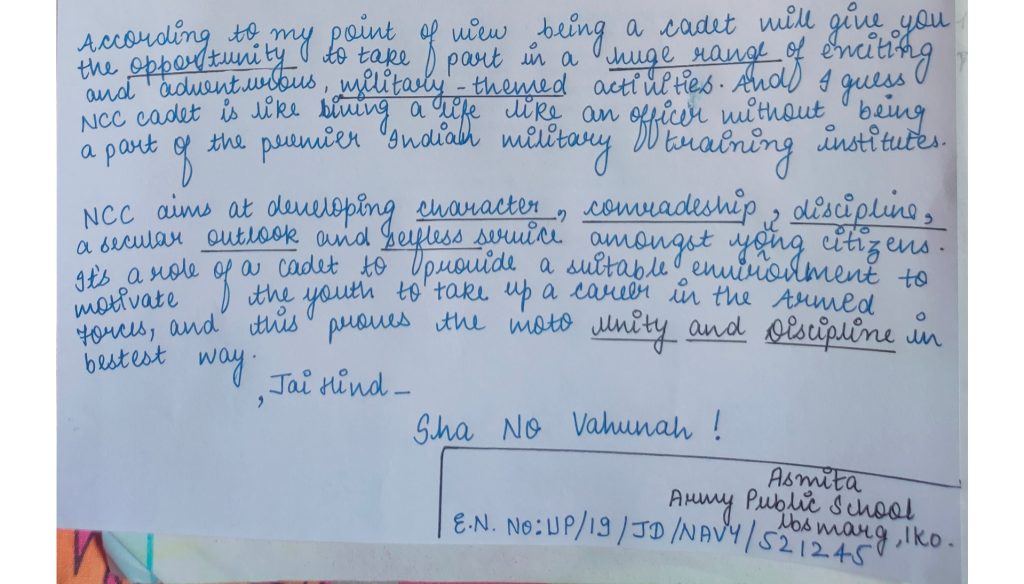 According to my point of view being a cadet will give you
the opportunity to take part in a huge range of exciting
and adventurous, military-themed activities. And I guess
NCC cadet is like living a life like an officer without being
a part of the premier Indian military training institutes.
NCC aims at developing character, comradeship, discipline,
a secular outlook and selfless service amongst young citizens.
It's a role of a cadet to provide a suitable environment to
motivate the youth to take up a career in the Armed
Forces, and this proves the moto Unity and Discipline in
bestest way.
, Jai Hind –
Sha No Vahunah !
Asmita
Army Public School
lbs marg, lko.
E.N. No: UP/19/JD/NAVY/521245